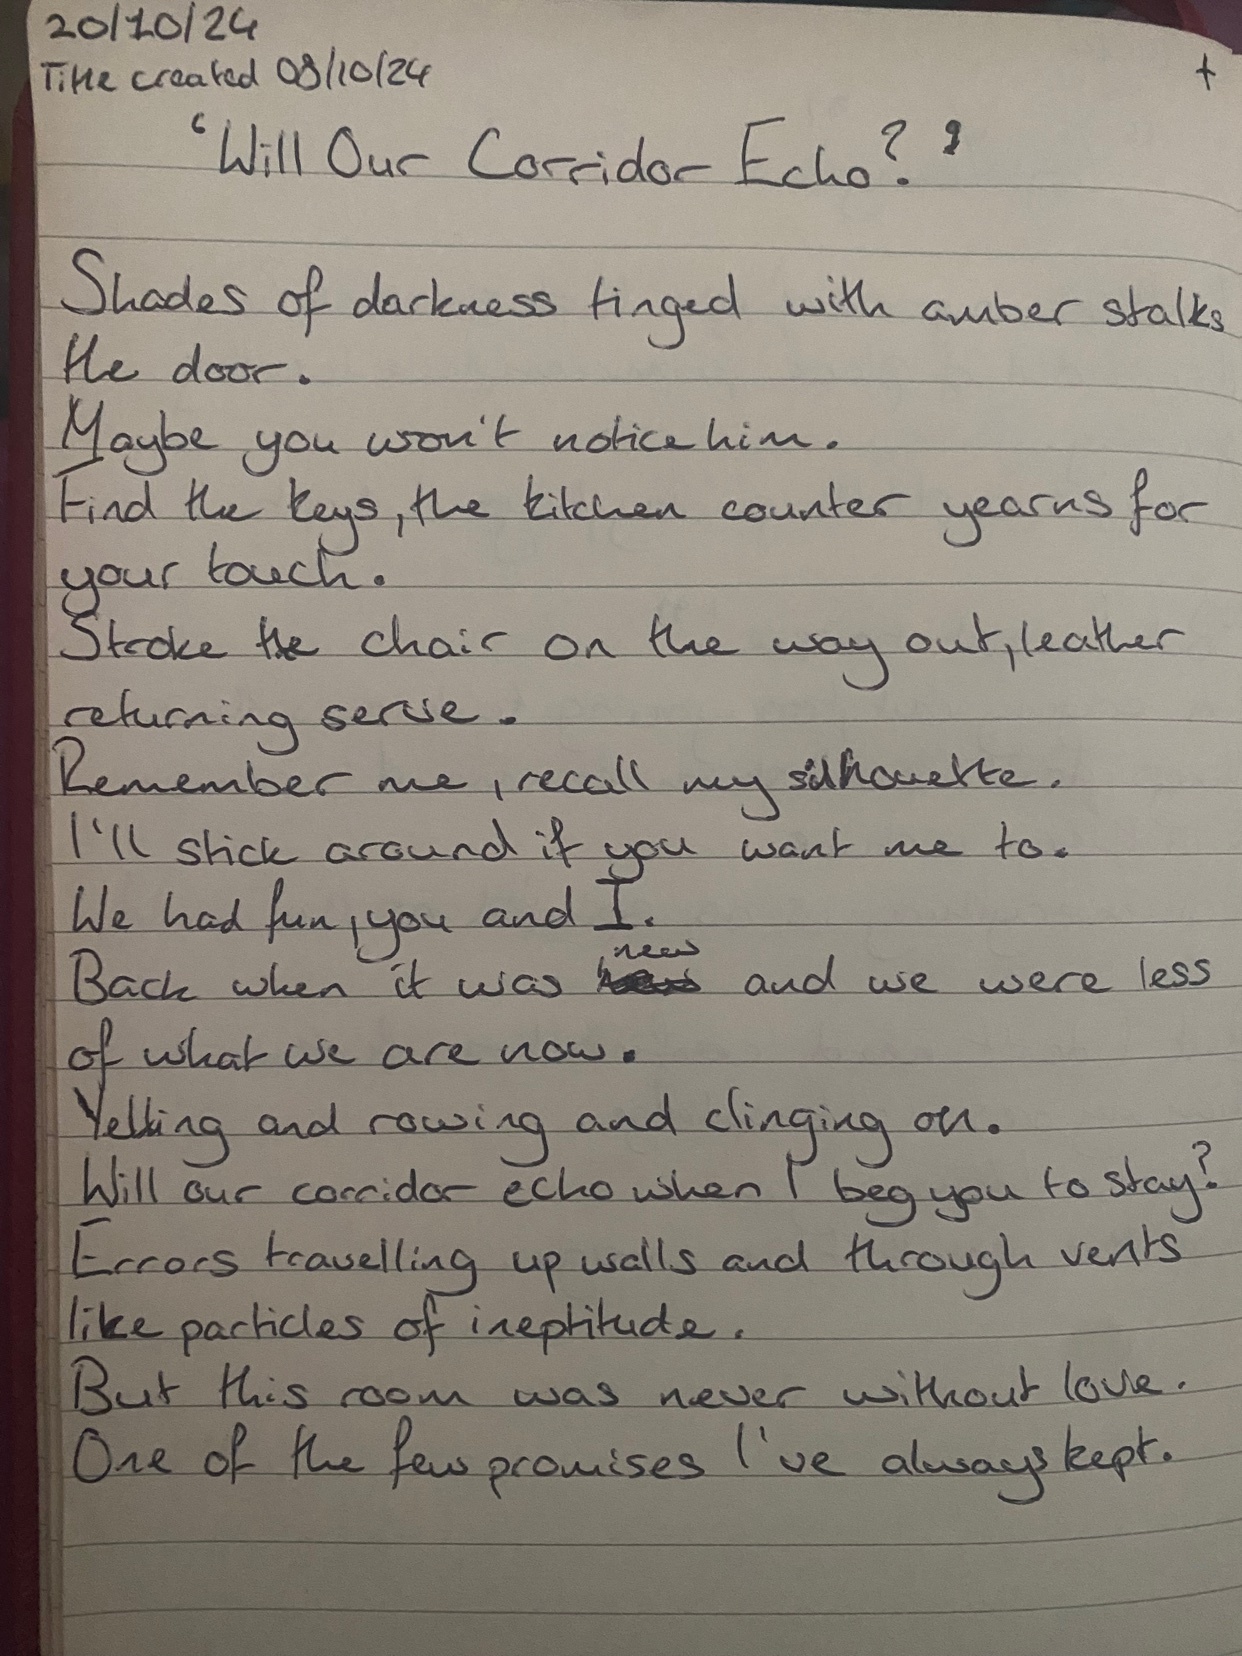 20/10/24
Title created 09/10/24
+
'Will Our Corridor Echo?'
Shades of darkness tinged with amber stalks
the door.
Maybe you won't notice him.
Find the keys, the kitchen counter yearns for
your touch.
Stroke the chair on the way out, leather
returning serve.
Remember me, recall my silhouette.
I'll stick around if you want me to.
We had fun, you and I.
new
Back when it was and we were less
of what we are now.
Yelling and rowing and clinging on.
Will our corridor echo when I beg you to stay?
Errors travelling up walls and through vents
like particles of ineptitude.
But this room was never without love.
One of the few promises I've always kept.